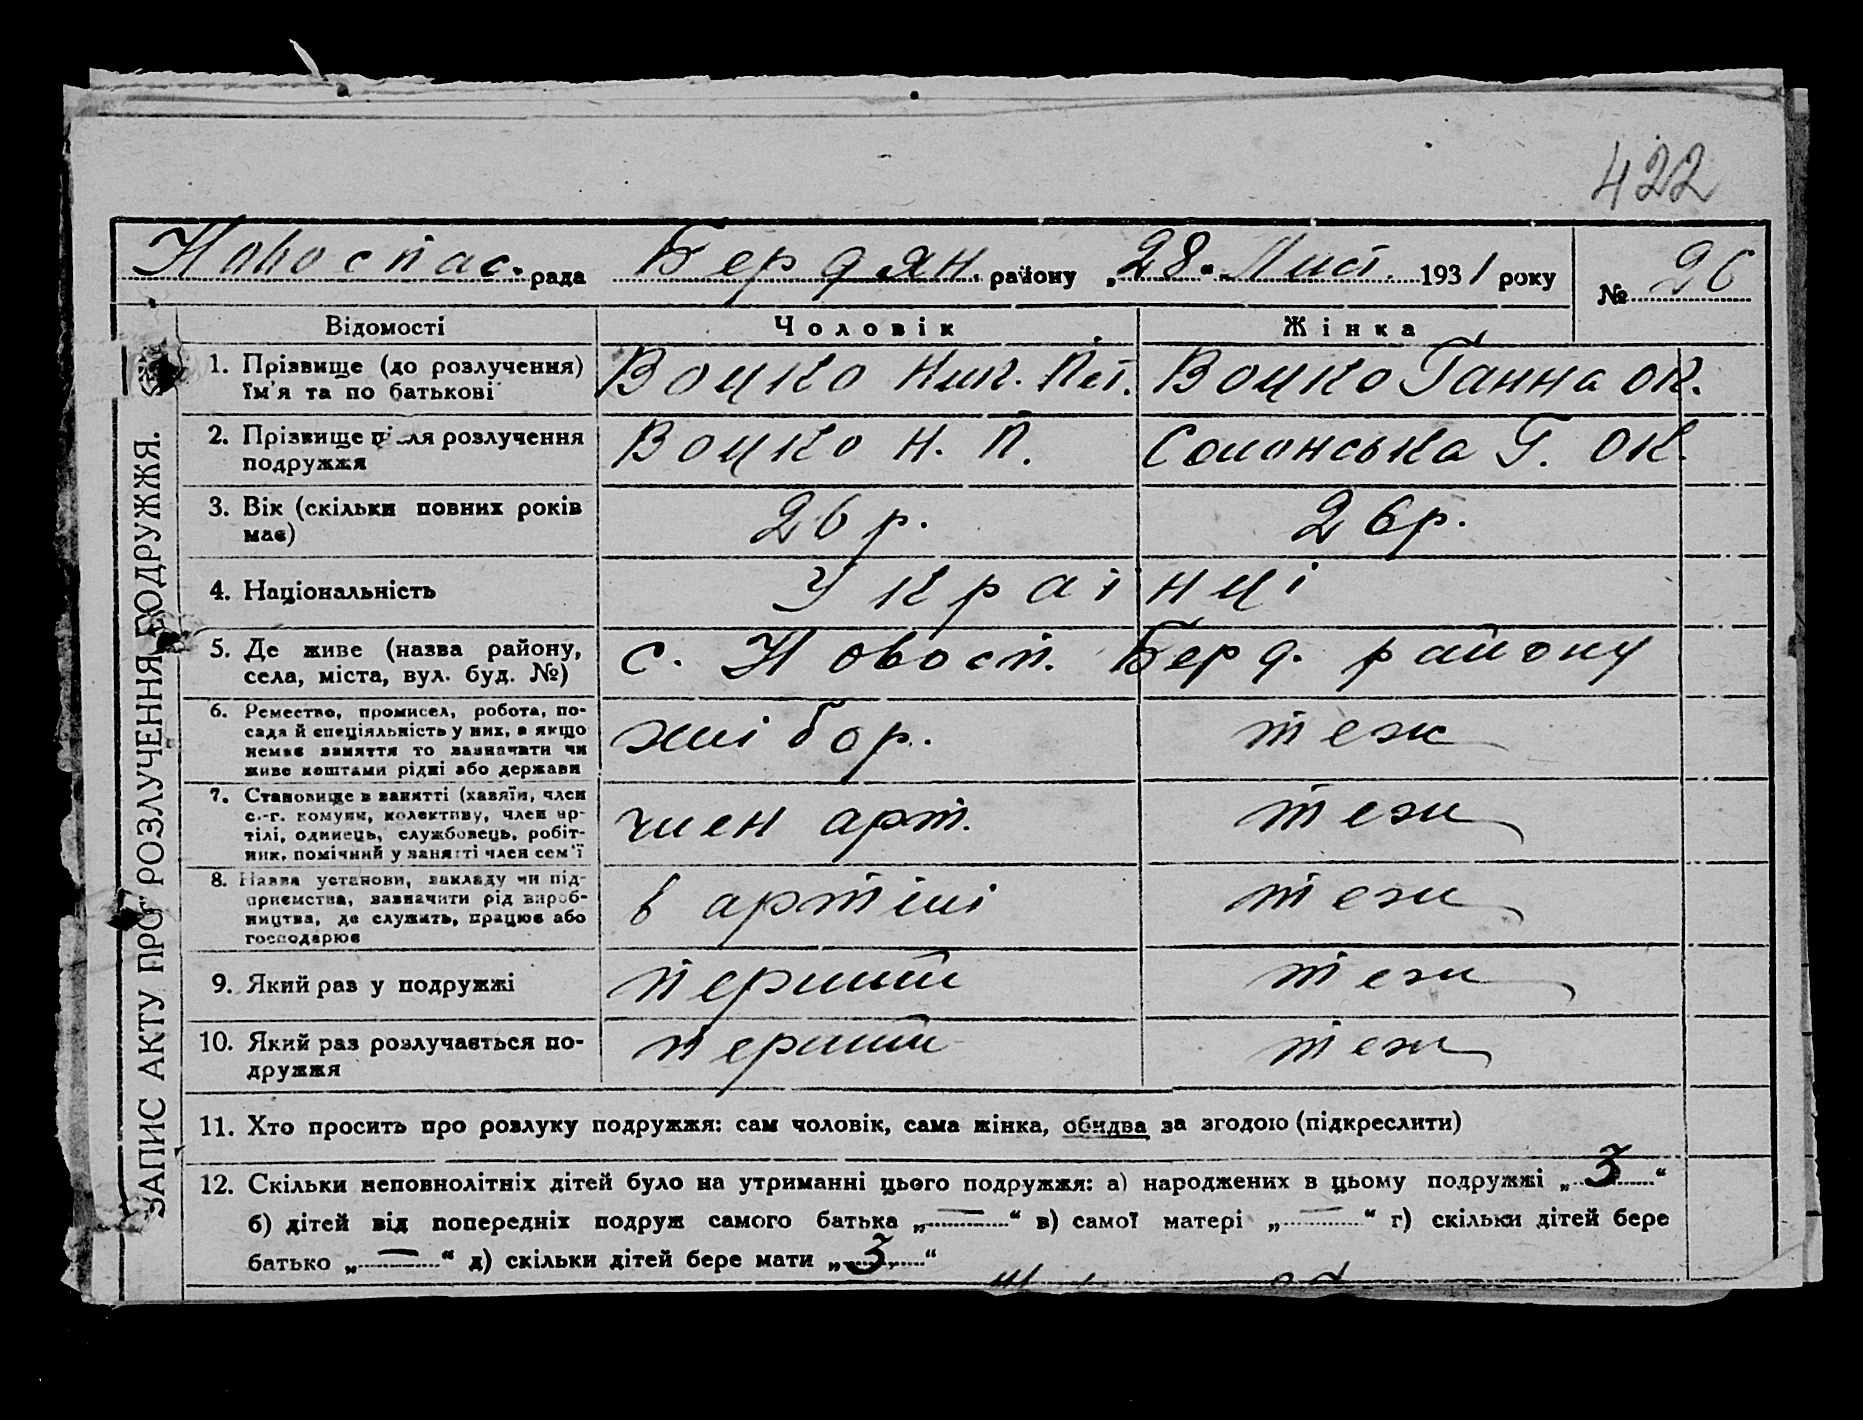 422
Новоспас. рада Бердян. району „28“ Лист. 1931 року № 26
ЗАПИС АКТУ ПРО РОЗЛУЧЕННЯ ПОДРУЖЖЯ.
Відомості Чоловік Жінка
1. Прізвище (до розлучення) Воцко Ник. Пет. Воцко Ганна ОК.
їм'я та по батькові
2. Прізвище після розлучення Воцко Н. П. Солонська Г. ОК.
подружжя
3. Вік (скільки повних років 26 р. 26 р.
має)
4. Національність Українці
5. Де живе (назва району, с. Новосп. Берд. району
села, міста, вул. буд. №)
6. Ремество, промисел, робота, по-
сада й спеціяльність у них, а якщо хлібор. теж
немає заняття то зазначати чи
живе коштами рідні або держави
7. Становище в занятті (хазяїн, член
с.-г. комуни, колективу, член ар- член арт. теж
тілі, одинець, службовець, робіт-
ник, помічний у занятті член сем'ї
8. Назва установи, закладу чи під-
приємства, зазначити рід вироб- в артілі теж
ництва, де служить, працює або
господарює
9. Який раз у подружжі перший теж
10. Який раз розлучається по- перший теж
дружжя
11. Хто просить про розлуку подружжя: сам чоловік, сама жінка, обидва за згодою (підкреслити)
12. Скільки неповнолітніх дітей було на утриманні цього подружжя: а) народжених в цьому подружжі „3“
б) дітей від попередніх подруж самого батька „—“ в) самої матері „—“ г) скільки дітей бере
батько „—“ д) скільки дітей бере мати „3“